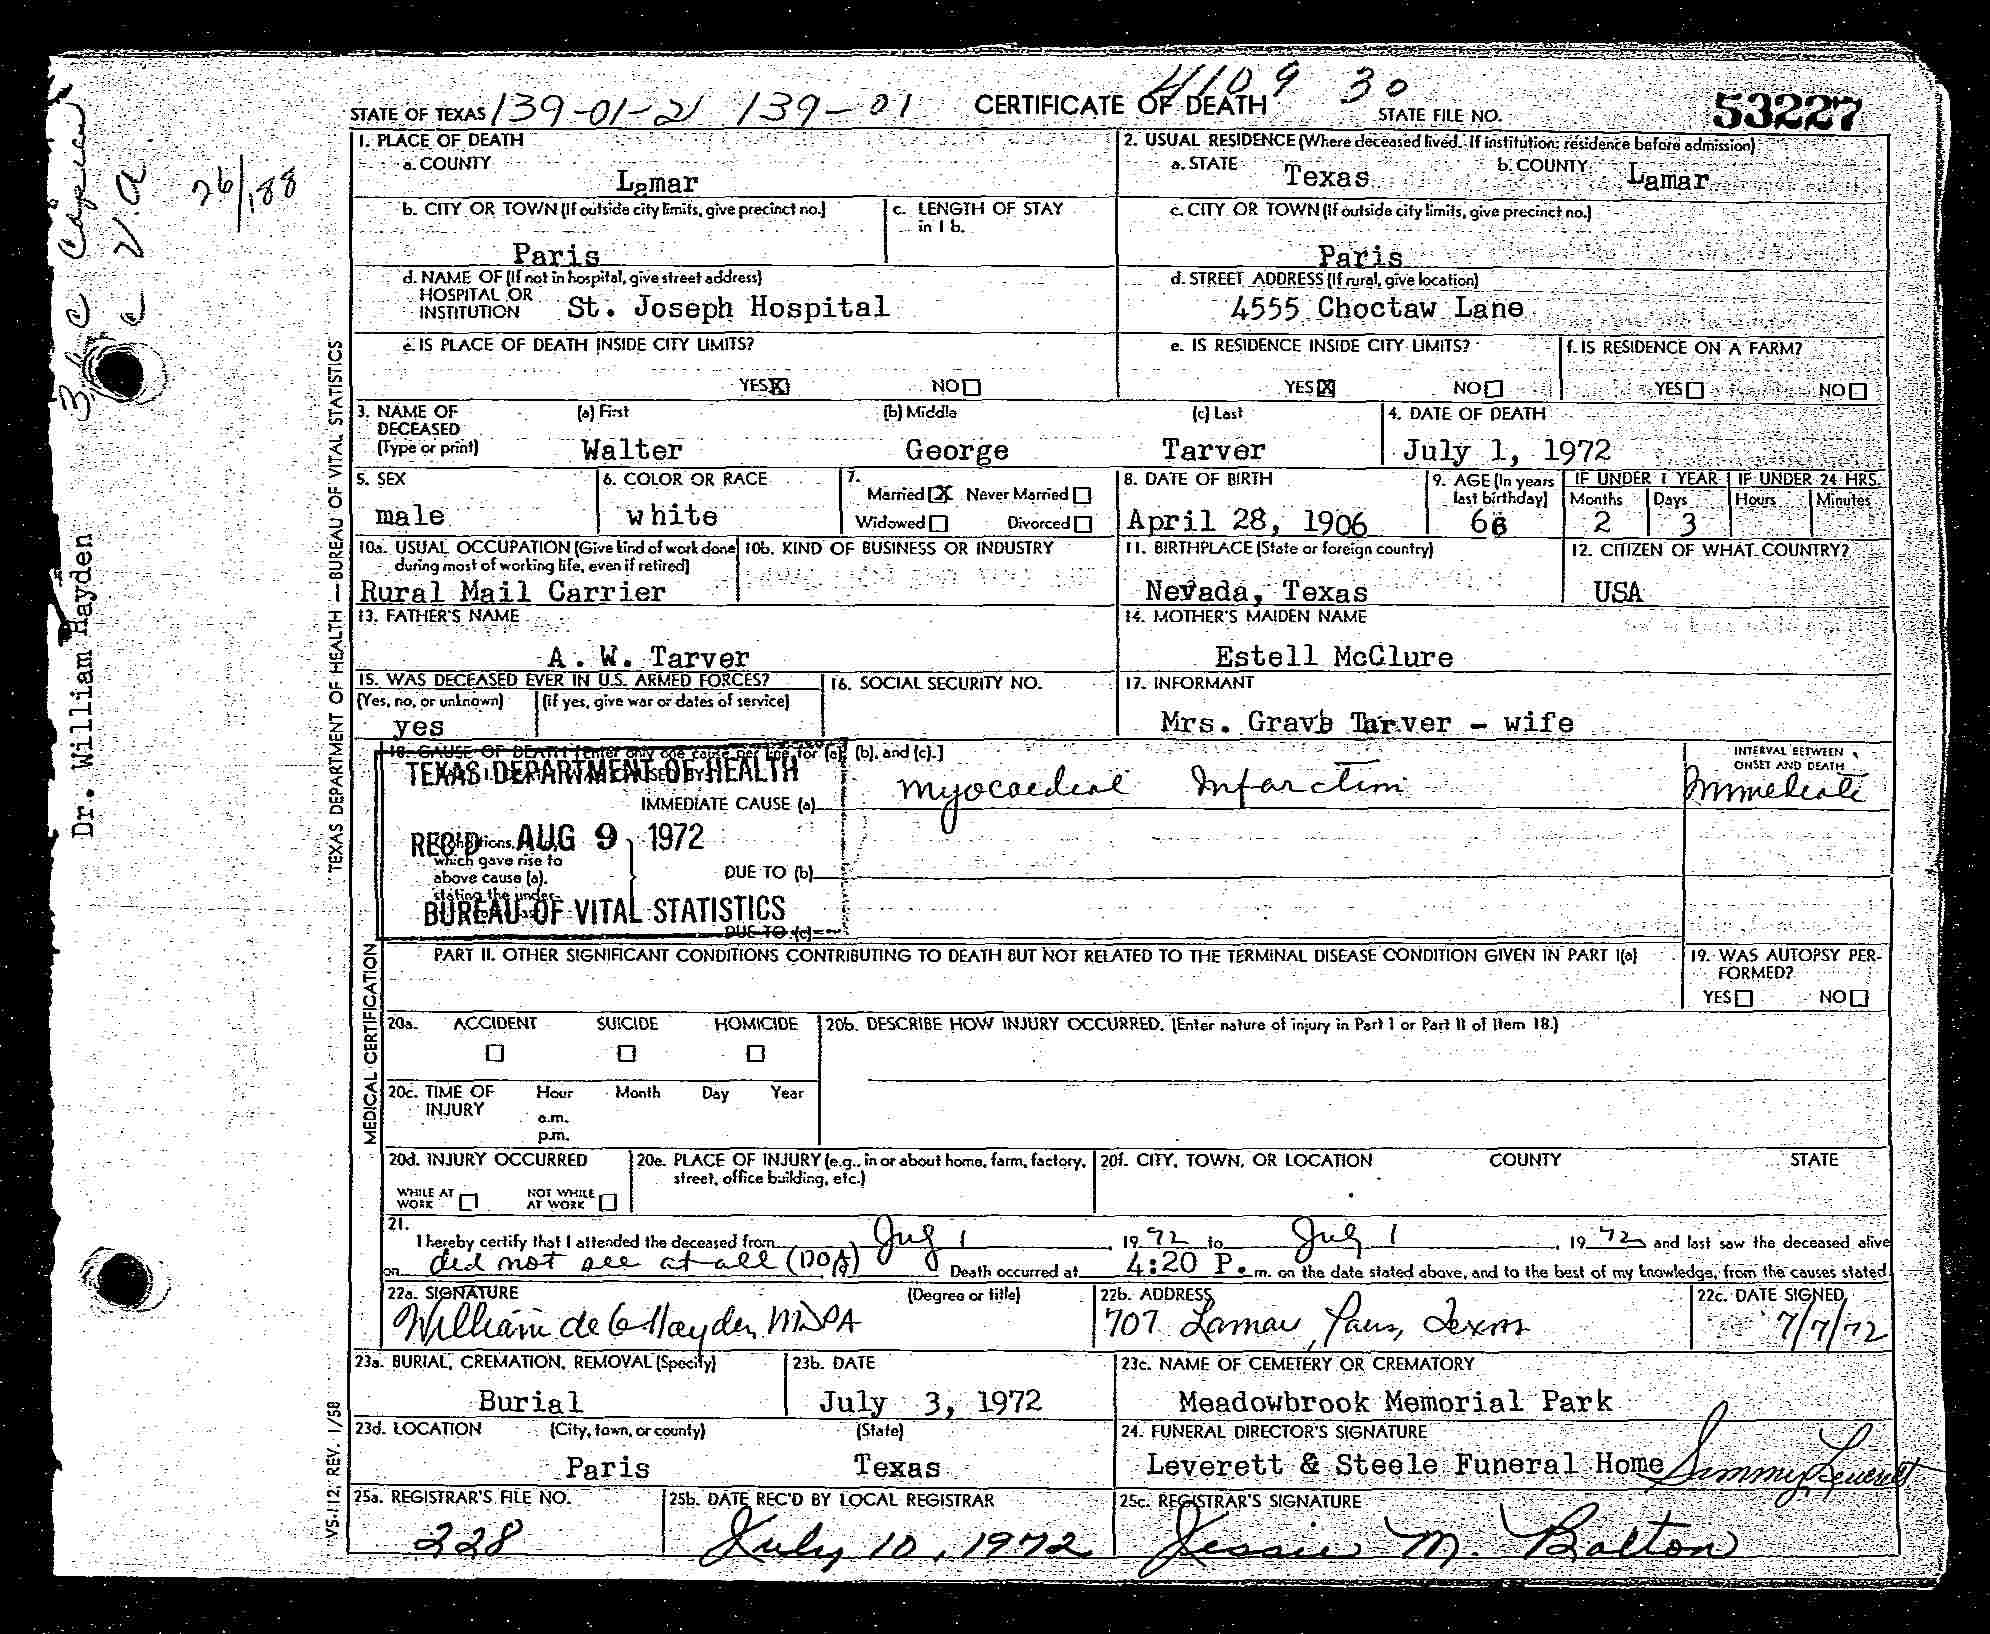 4109 30
STATE OF TEXAS 139-01-21 139-01 CERTIFICATE OF DEATH STATE FILE NO. 53227
1. PLACE OF DEATH
a. COUNTY
Lamar
2. USUAL RESIDENCE (Where deceased lived. If institution: residence before admission)
a. STATE Texas b. COUNTY Lamar
b. CITY OR TOWN (If outside city limits, give precinct no.)
Paris
c. LENGTH OF STAY
in 1 b.
c. CITY OR TOWN (If outside city limits, give precinct no.)
Paris
d. NAME OF (If not in hospital, give street address)
HOSPITAL OR
INSTITUTION St. Joseph Hospital
d. STREET ADDRESS (If rural, give location)
4555 Choctaw Lane
e. IS PLACE OF DEATH INSIDE CITY LIMITS?
YES X NO
e. IS RESIDENCE INSIDE CITY LIMITS?
YES X NO
f. IS RESIDENCE ON A FARM?
YES NO
3. NAME OF
DECEASED
(Type or print)
(a) First (b) Middle (c) Last
Walter George Tarver
4. DATE OF DEATH
July 1, 1972
5. SEX
male
6. COLOR OR RACE
white
7.
Married X Never Married
Widowed Divorced
8. DATE OF BIRTH
April 28, 1906
9. AGE (In years
last birthday)
66
IF UNDER 1 YEAR
Months Days
2 3
IF UNDER 24 HRS.
Hours Minutes
10a. USUAL OCCUPATION (Give kind of work done
during most of working life, even if retired)
Rural Mail Carrier
10b. KIND OF BUSINESS OR INDUSTRY
11. BIRTHPLACE (State or foreign country)
Nevada, Texas
12. CITIZEN OF WHAT COUNTRY?
USA
13. FATHER'S NAME
A. W. Tarver
14. MOTHER'S MAIDEN NAME
Estell McClure
15. WAS DECEASED EVER IN U.S. ARMED FORCES?
(Yes, no, or unknown) (If yes, give war or dates of service)
yes
16. SOCIAL SECURITY NO.
17. INFORMANT
Mrs. Tarver - wife
18. CAUSE OF DEATH [Enter only one cause per line for (a), (b), and (c).]
INTERVAL BETWEEN
ONSET AND DEATH
TEXAS DEPARTMENT OF HEALTH
IMMEDIATE CAUSE (a) Myocardial Infarction Immediate
REC'D AUG 9 1972
which gave rise to
above cause (a),
stating the under-
DUE TO (b)
BUREAU OF VITAL STATISTICS
DUE TO (c)
PART II. OTHER SIGNIFICANT CONDITIONS CONTRIBUTING TO DEATH BUT NOT RELATED TO THE TERMINAL DISEASE CONDITION GIVEN IN PART I(a)
19. WAS AUTOPSY PER-
FORMED?
YES NO
20a. ACCIDENT SUICIDE HOMICIDE
20b. DESCRIBE HOW INJURY OCCURRED. (Enter nature of injury in Part I or Part II of Item 18.)
20c. TIME OF
INJURY
Hour Month Day Year
a.m.
p.m.
20d. INJURY OCCURRED
WHILE AT
WORK
NOT WHILE
AT WORK
20e. PLACE OF INJURY (e.g., in or about home, farm, factory,
street, office building, etc.)
20f. CITY, TOWN, OR LOCATION COUNTY STATE
21.
I hereby certify that I attended the deceased from July 1, 1972 to July 1, 1972 and last saw the deceased alive
on did not see at all (DOA) Death occurred at 4:20 P. m. on the date stated above, and to the best of my knowledge, from the causes stated
22a. SIGNATURE (Degree or title)
William de G Hayden, MD PA
22b. ADDRESS
707 Lamar, Paris, Texas
22c. DATE SIGNED
7/7/72
23a. BURIAL, CREMATION, REMOVAL (Specify)
Burial
23b. DATE
July 3, 1972
23c. NAME OF CEMETERY OR CREMATORY
Meadowbrook Memorial Park
23d. LOCATION (City, town, or county) (State)
Paris Texas
24. FUNERAL DIRECTOR'S SIGNATURE
Leverett & Steele Funeral Home Leverett
25a. REGISTRAR'S FILE NO.
228
25b. DATE REC'D BY LOCAL REGISTRAR
July 10, 1972
25c. REGISTRAR'S SIGNATURE
Jessie M. Bolton
TEXAS DEPARTMENT OF HEALTH — BUREAU OF VITAL STATISTICS
MEDICAL CERTIFICATION
VS-112, REV. 1/58
Dr. William Hayden